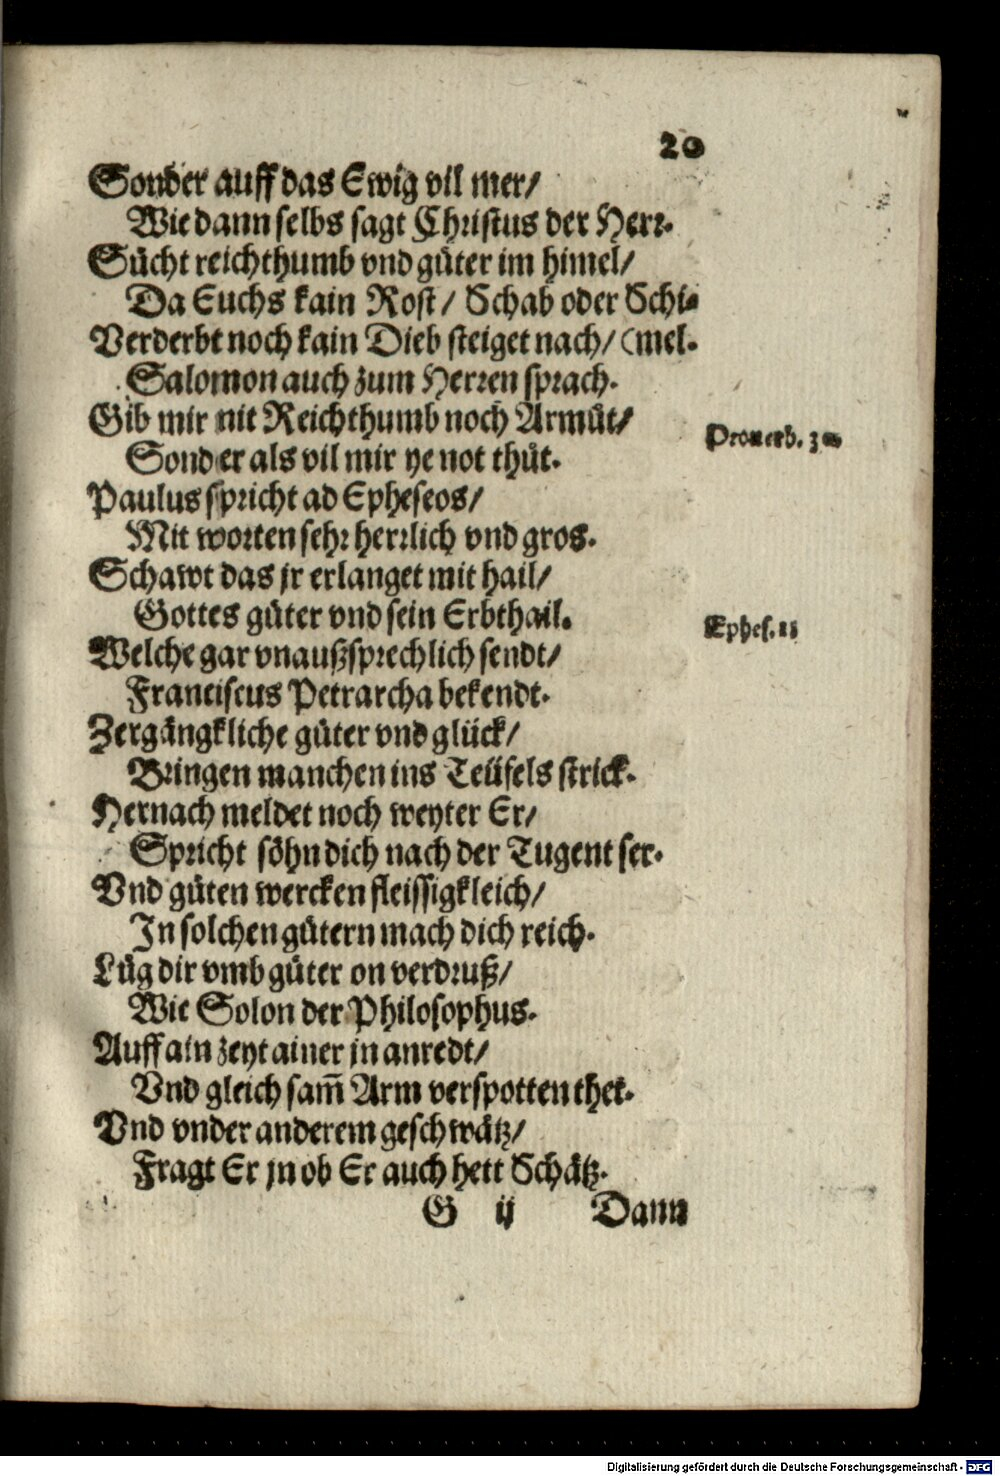 20
Sonder auff das Ewig vil mer/
Wie dann selbs sagt Christus der Herr.
Sücht reichthumb vnd güter im himel/
Da Euchs kain Rost/ Schab oder Schi⸗
Verderbt noch kain Dieb steiget nach/ (mel.
Salomon auch zum Herren sprach.
Gib mir nit Reichthumb noch Armüt/
Prouerb. 30
Sonder als vil mir ye not thüt.
Paulus spricht ad Epheseos/
Mit worten sehr herrlich vnd gros.
Schawt das jr erlanget mit hail/
Gottes güter vnd sein Erbthail.
Ephes. 1j
Welche gar vnaußsprechlich sendt/
Franciscus Petrarcha bekendt.
Zergängkliche güter vnd glück/
Bringen manchen ins Teüfels strick.
Hernach meldet noch weyter Er/
Spricht söhn dich nach der Tugent ser.
Vnd güten wercken fleissigkleich/
In solchen gütern mach dich reich.
Lüg dir vmb güter on verdruß/
Wie Solon der Philosophus.
Auff ain zeyt ainer jn anredt/
Vnd gleich sam̄ Arm verspotten thet.
Vnd vnder anderem geschwätz/
Fragt Er jn ob Er auch hett Schätz.
G ij Dann
Digitalisierung gefördert durch die Deutsche Forschungsgemeinschaft - DFG